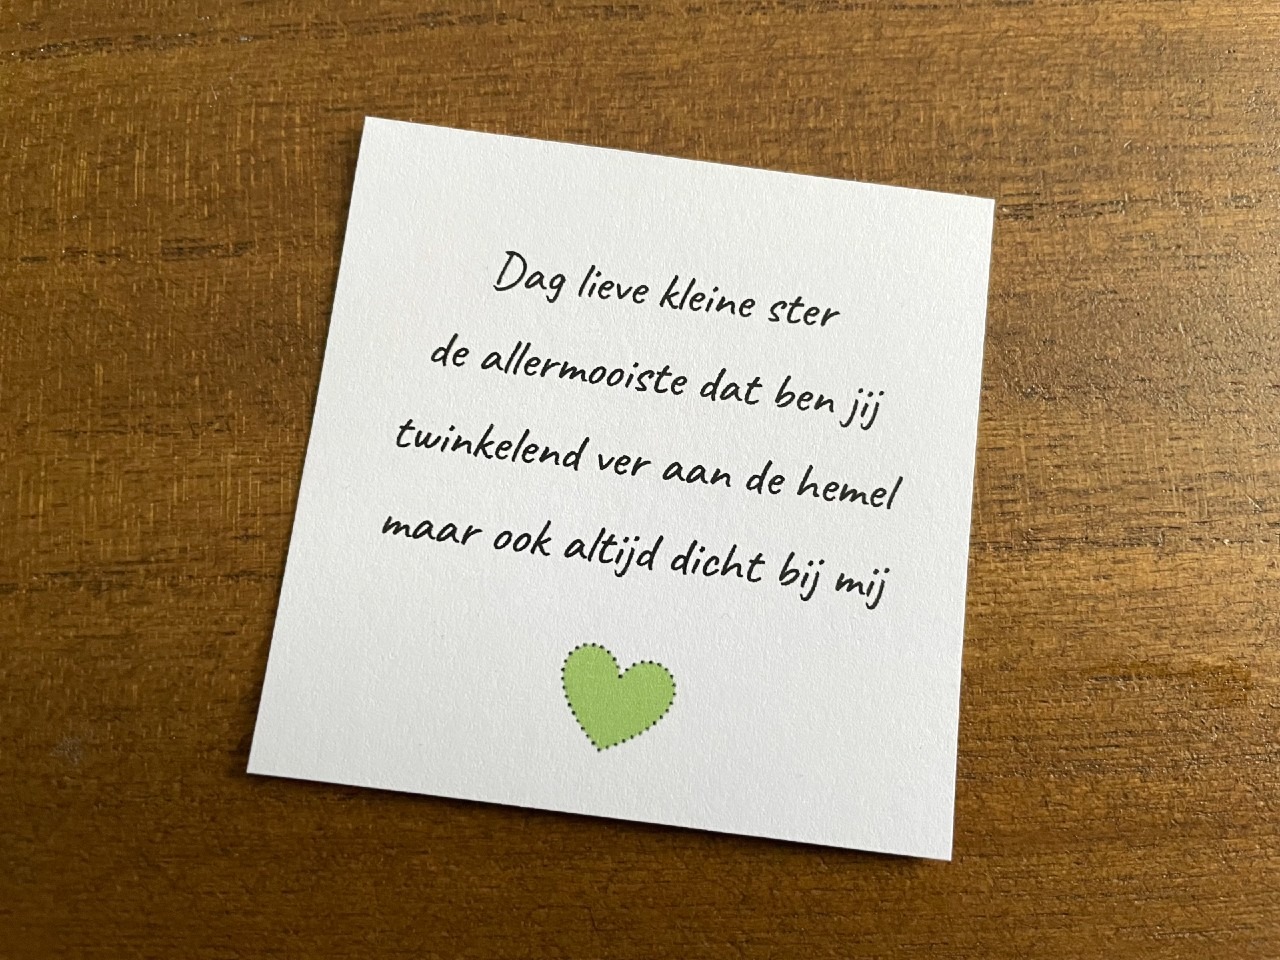 Dag lieve kleine ster
de allermooiste dat ben jij
twinkelend ver aan de hemel
maar ook altijd dicht bij mij